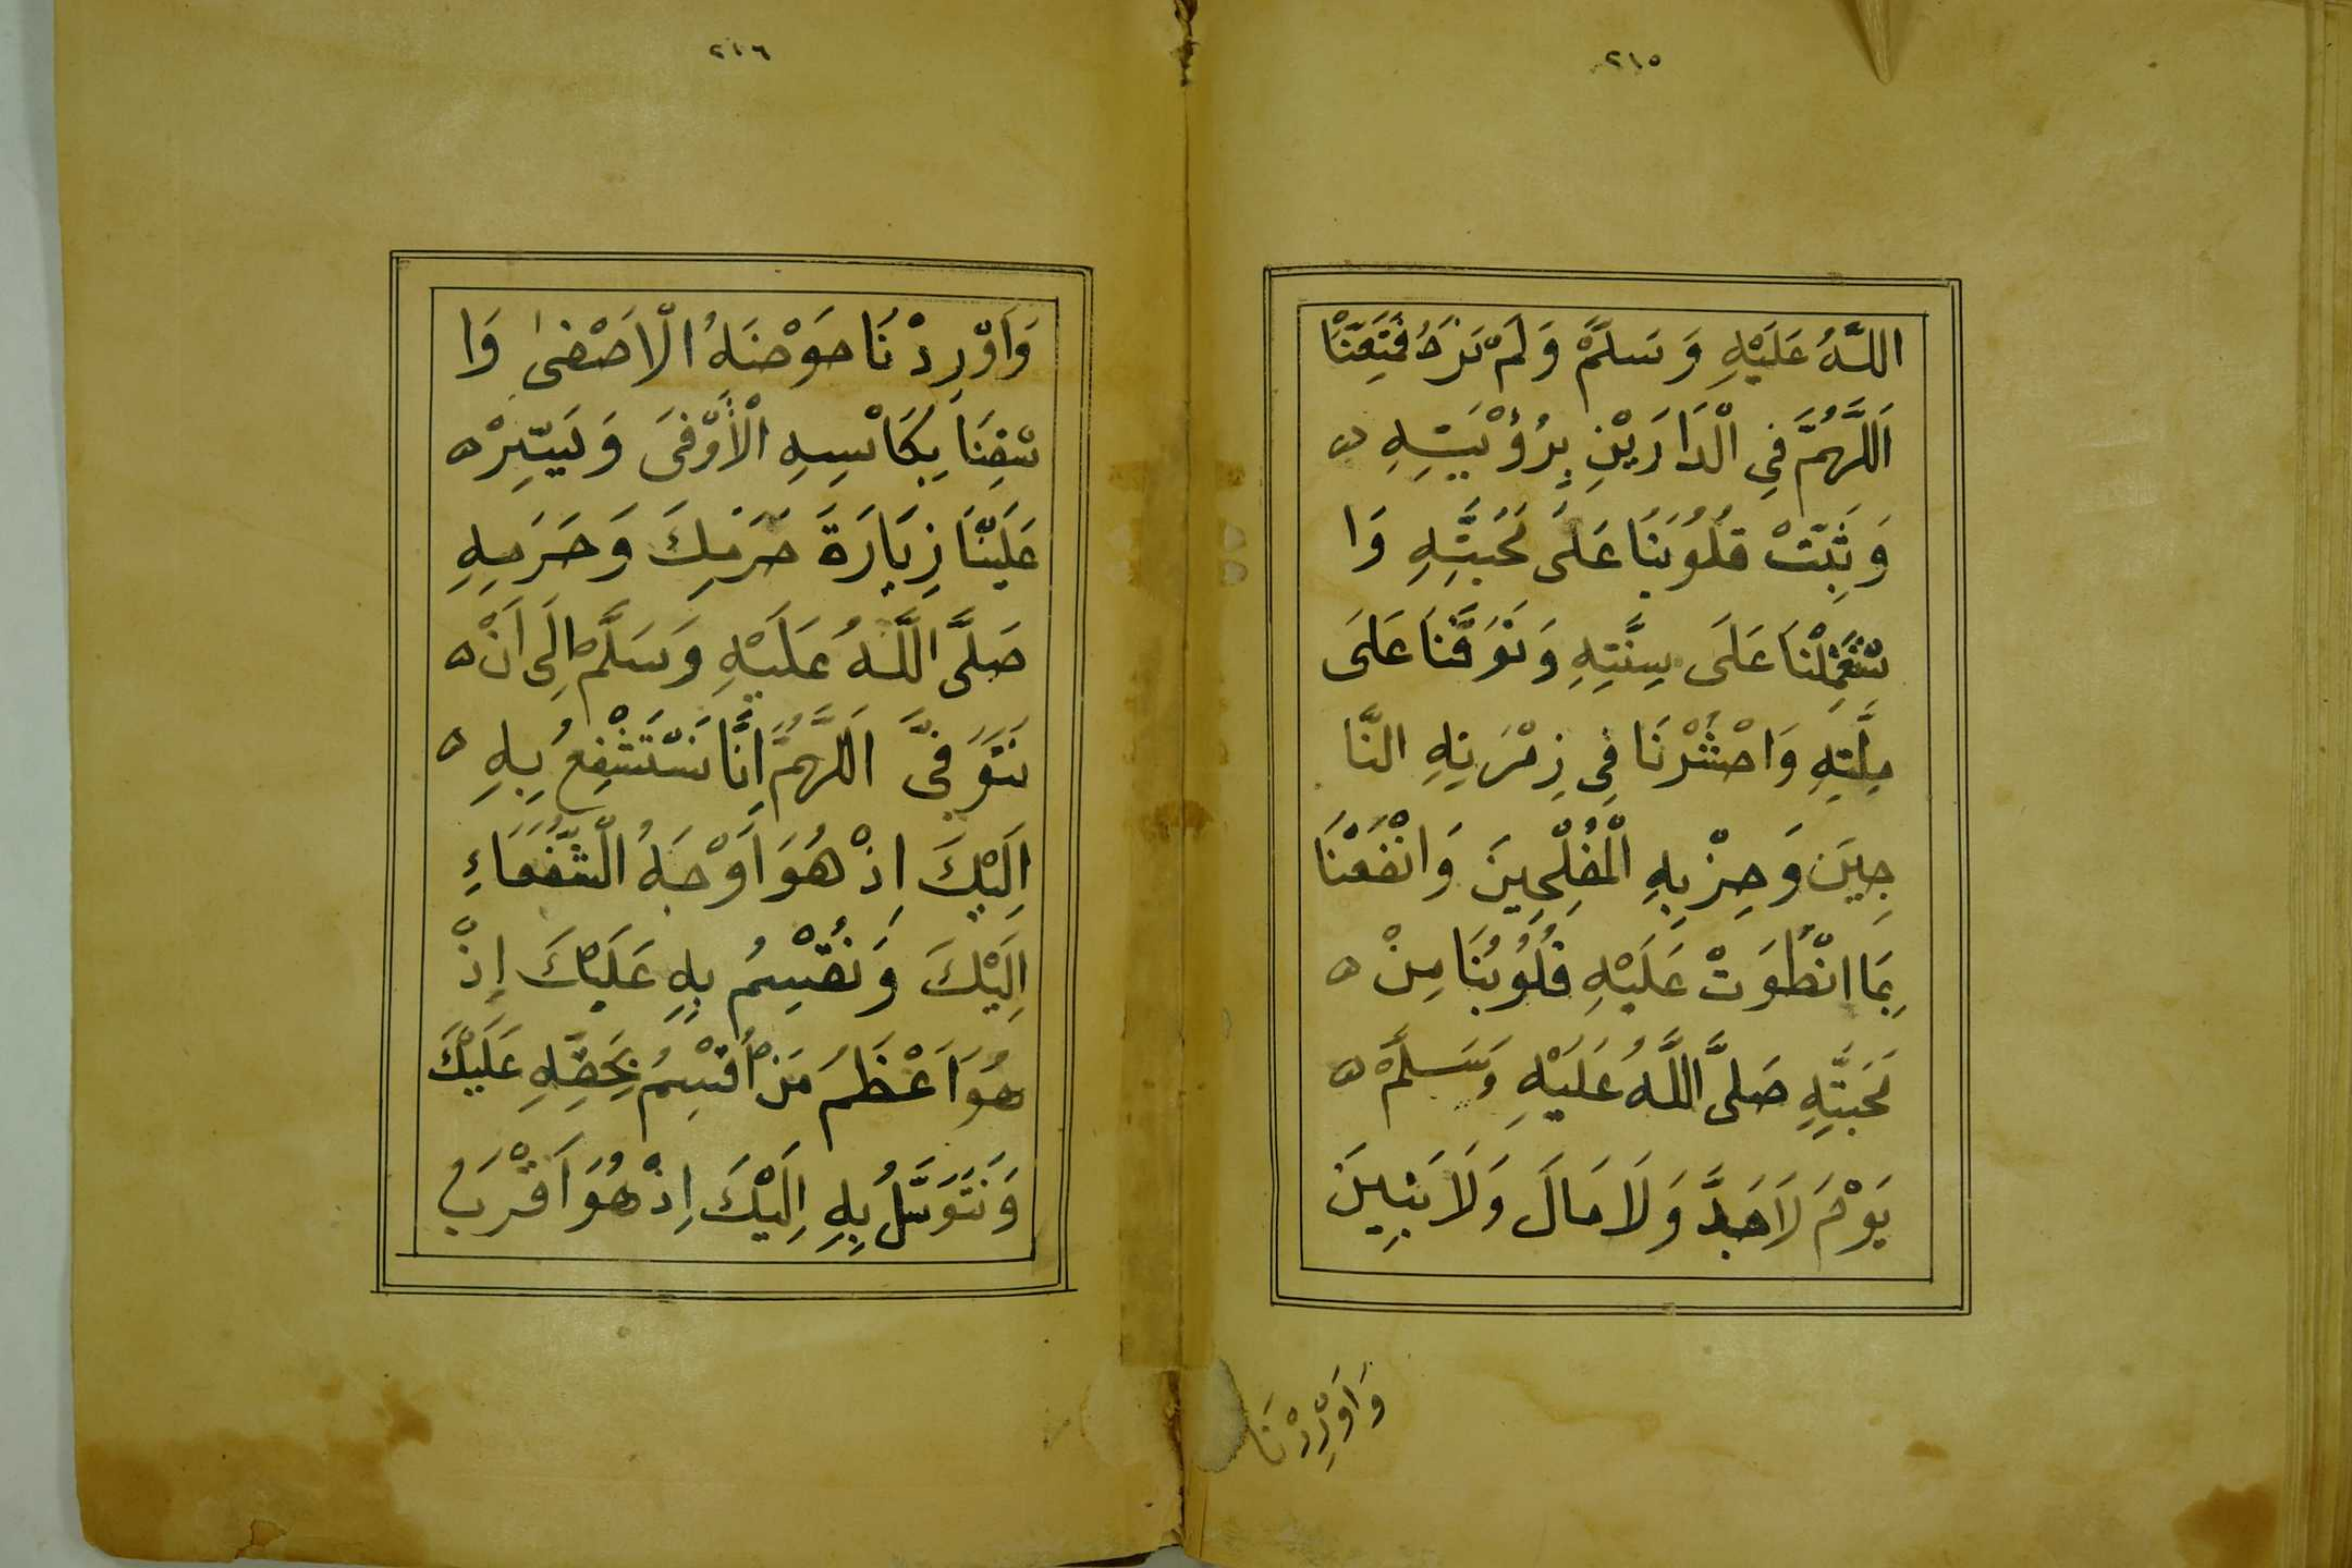 ٢١٥
اللَّهُ عَلَيْهِ وَسَلَّمْ وَلَمْ نَرَهُ فَمَتِّعْنَا
اَللَّهُمَّ فِي الْدَارَيْنِ بِرُؤْيَتِهِ ه
وَثَبِّتْ قُلُوبَنَا عَلَى مَحَبَّتِهِ وَا
سْتَعْمِلْنَا عَلَى سِنَّتِهِ وَتَوَفَّنَا عَلَى
مِلَّتِهِ وَاحْشُرْنَا فِي زِمْرَتِهِ النَّا
جِيَن وَحِزْبِهِ الْمُفْلِحِينَ وَانْفَعْنَا
بِمَا انْطَوَتْ عَلَيْهِ قُلُوبُنَا مِنْ ه
مَحَبَّتِهِ صَلَّى اللَّهُ عَلَيْهِ وَسَلَّمْ ه
يَوْمَ لَا جَدَّ وَلَا مَالَ وَلَا بَنِينَ
وَاَوْرِدْنَا
٢١٦
وَاَوْرِدْنَا حَوْضَهُ الْاَصْفىٰ وَا
سْقِنَا بِكَاْسِهِ الْأَوْفَى وَيَسِّرْ ه
عَلَيْنَا زِيَارَةَ حَرَمِكَ وَحَرَمِهِ
صَلَّى اللَّهُ عَلَيْهِ وَسَلَّمْ اِلَى اَنْ ه
نَتَوَفَّى اَللَّهُمَّ اِنَّا نَسْتَشْفِعُ بِهِ ه
اِلَيْكَ اِذْ هُوَ اَوْجَهُ الْشُّفَعَاءِ
اِلَيْكَ وَنُقْسِمُ بِهِ عَلَيْكَ إِذْ
هُوَ اَعْظَمُ مَنْ اُقْسِمُ بِحَقِّهِ عَلَيْكَ
وَنَتَوَسَّلُ بِهِ اِلَيْكَ اِذْ هُوَ اَقْرَبُ